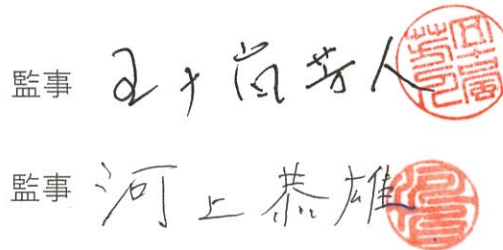 監事 五十嵐芳人
監事 河上恭雄